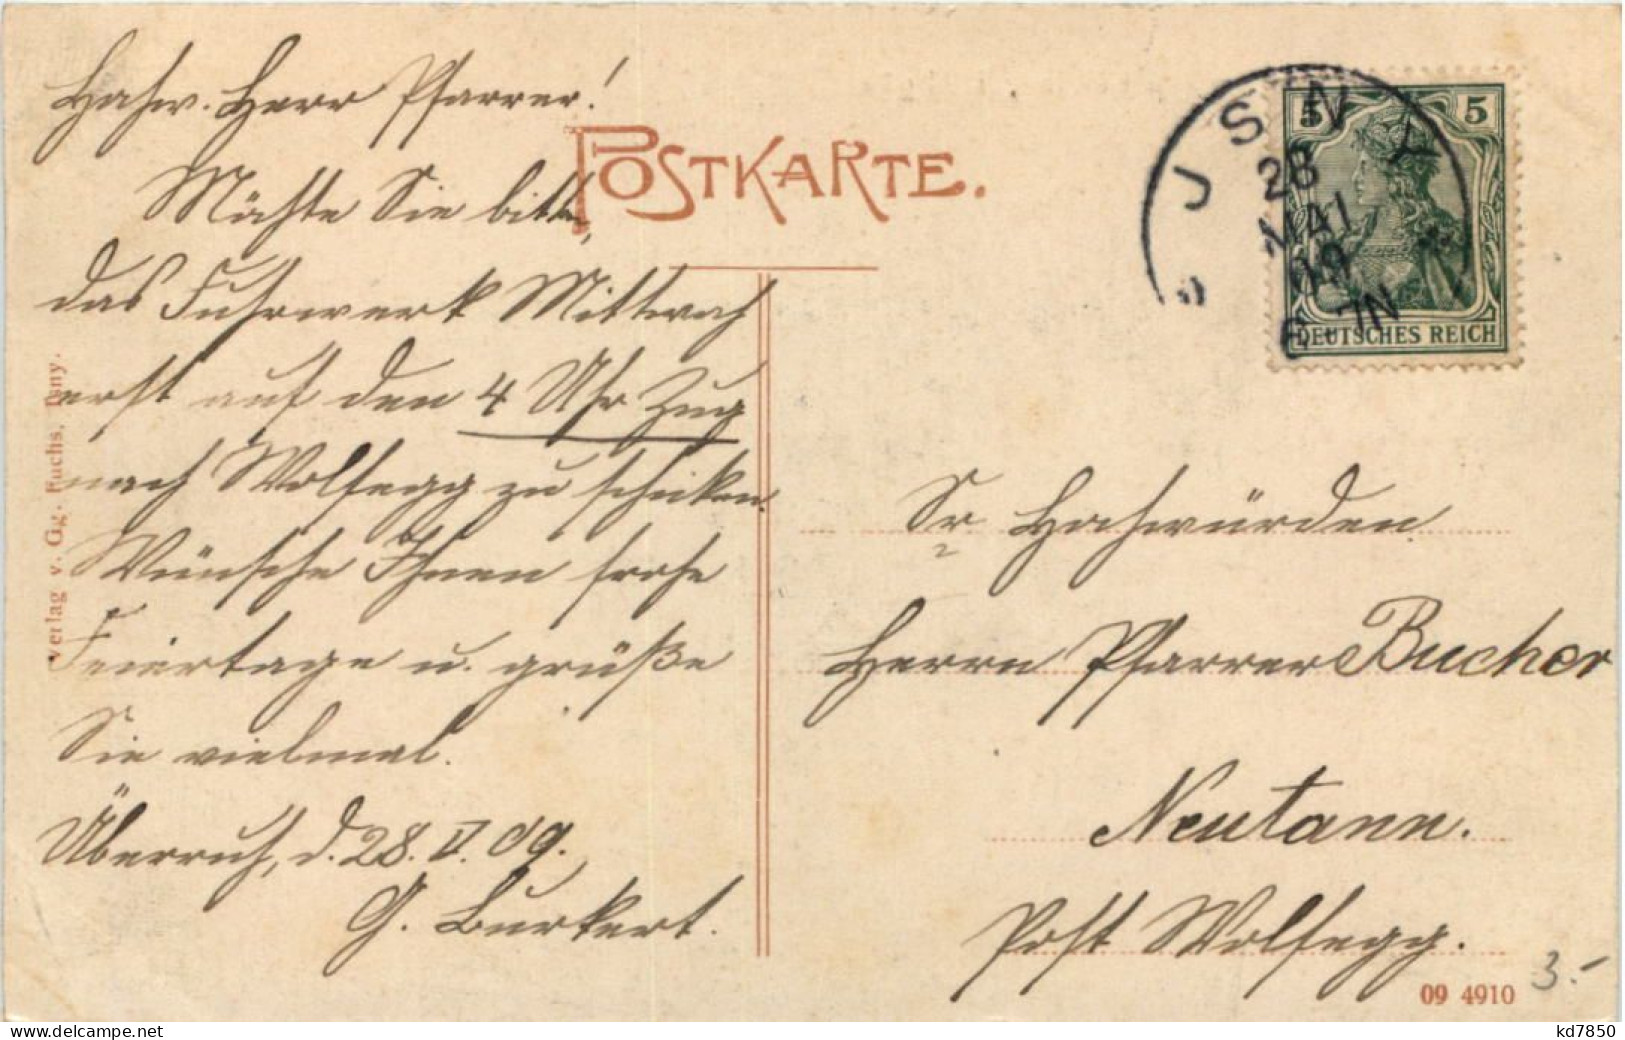 Hochw. Herr Pfarrer!
Möchte Sie bitten,
das Fuhrwerk Mittwoch
erst auf den 4 Uhr Zug
nach Wolfegg zu schicken.
Wünsche Ihnen frohe
Feiertage u. grüße
Sie vielmal.
Überruh, d. 28. V. 09.
G. Burkert.
POSTKARTE.
Verlag v. Gg. Fuchs, Isny.
JSNY
28
MAI
09
6-7N
5 5
DEUTSCHES REICH
Sr. Hochwürden
Herrn Pfarrer Bucher
Neutann.
Post Wolfegg.
09 4910
3.-
kd7850